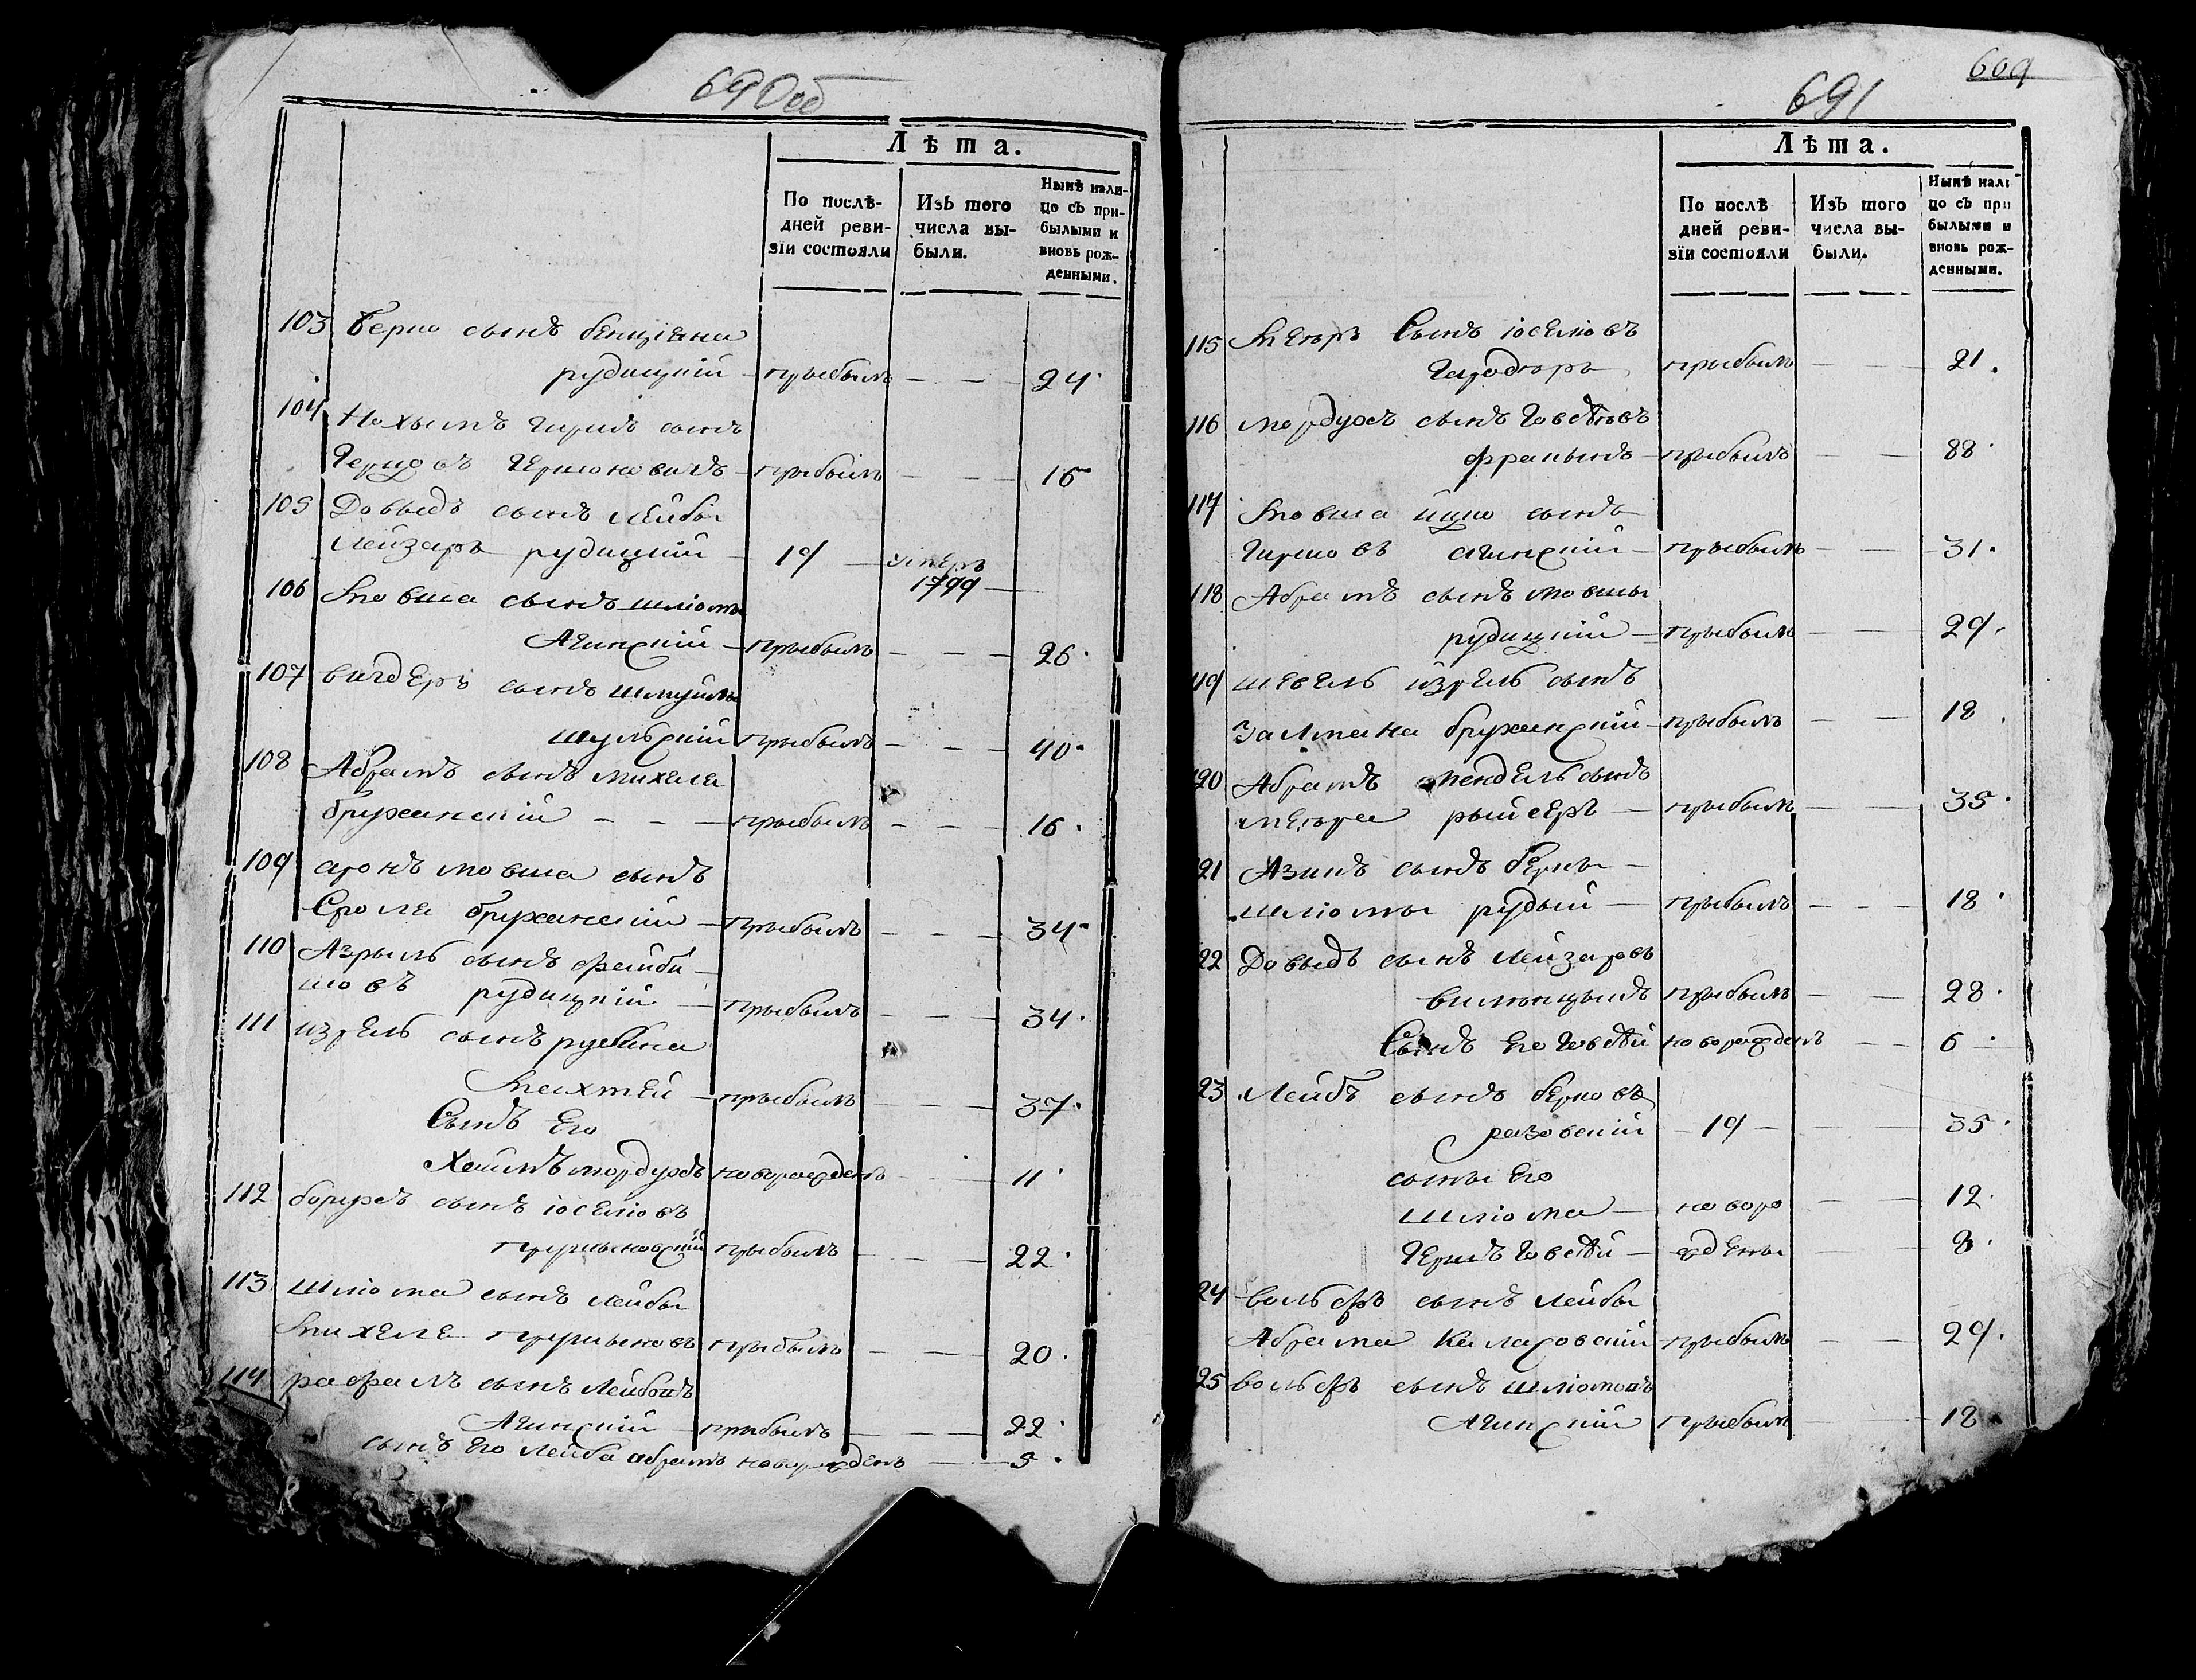 690 об
Лѣта.
По послѣ- дней реви- зїи состояли
Изъ того числа вы- были.
Нынѣ нали- цо съ при- былыми и вновь рож- денными.
103 Берко сынъ бенцїана
рудицкїй прыбылъ — — 24.
104 Нохымъ гиршъ сынъ
Гершовъ Гершоновичъ прыбылъ — — 16
105 Довыдъ сынъ лейбы
Лейзаръ рудицкїй — 19 — умеръ 1799 —
106 Мовша сынъ шлїомы
Агинскїй — прыбылъ — — 26.
107 вигдеръ сынъ шмуйлы
шульскїй прыбылъ — — 40.
108 Абрамъ сынъ михеля
бружанскїй — — — прыбылъ — — 16.
109 аронъ мовша сынъ
Сроля бружанскїй — прыбылъ — — 34.
110 Азрыль сынъ фейби-
шовъ рудицкїй — прыбылъ — — 34.
111 изрель сынъ рубина
Махтей — прыбылъ — — 37.
Сынъ Его
Хаимъ мордухъ новорожденъ — — 11.
112 борухъ сынъ їоселїовъ
прыбылъ — — 22.
113 Шлїома сынъ лейбы
Михеля прыбылъ — — 20.
114 рафалъ сынъ
Агинскїй — прыбылъ — — 22
сынъ Его лейба абрамъ новорожденъ — — 5.
609
691
Лѣта.
По послѣ дней реви- зїи состояли
Изъ того числа вы- были.
Нынѣ нали цо съ при былыми и вновь рож- денными.
115 Мееръ Сынъ їоселїовъ
прыбылъ — — 21.
116 мордухъ сынъ
прыбылъ — — 88.
117 Мовша ицко сынъ
Гиршовъ агинскїй — прыбылъ — — 31.
118 Абрамъ сынъ мовшы
рудицкїй — прыбылъ — — 29.
119 шевель изрель сынъ
Залмана бружанскїй — прыбылъ — — 18.
120 Абрамъ мендель сынъ
меера рыйзеръ — прыбылъ — — 35.
21 Азикъ сынъ берки —
шлїомы рудый — прыбылъ — — 18.
22 Довыдъ сынъ Лейзаровъ
прыбылъ — — 28.
Сынъ Его новорожденъ — — 6.
23 Лейбъ сынъ берковъ
разовскїй — 19 — — 35.
сыны Его
Шлїома — новоро — — 12.
— ждены — — 8.
24 вольфъ сынъ Лейбы
Абрама прыбылъ — — 29.
25 вольфъ сынъ
Агинскїй прыбылъ — — 18